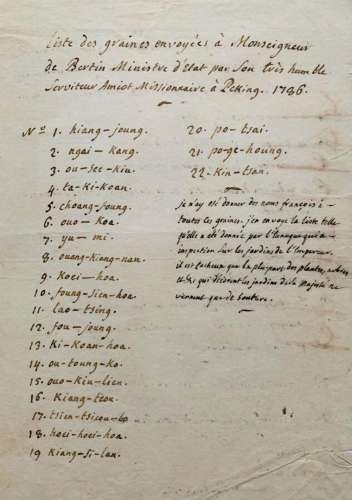 Liste des graines envoyées à Monseigneur
de Bertin Ministre d'Etat par Son très humble
Serviteur Amiot Missionnaire à Peking. 1786.
Nos 1. hiang-joung.
2. ngai-kang.
3. ou-see-kiu.
4. ta-ki-koan.
5. choang-joung.
6. ouo-koa.
7. yu-mi.
8. ouang-kiang-nan.
9. koei-hoa.
10. foung-sien-hoa.
11. lao-tsing.
12. fou-joung.
13. ki-koan-hoa.
14. ou-toung-ko.
15. ouo-kiu-lien.
16. kiang-teou.
17. tsien-tsieou-lo
18. hoei-hoei-hoa.
19. kiang-si-lan.
20. po-tsai.
21. po-ge-houng.
22. kin-tsan.
je n'ay osé donner des noms françois à
toutes ces graines. j'en envoye la liste telle
qu'elle m'a été donnée par l'Eunuque qui a
inspection sur les jardins de l'Empereur.
il est facheux que la plupart des plantes, arbres
qui décorent les jardins de Sa Majesté ne
viennent que de bouture.